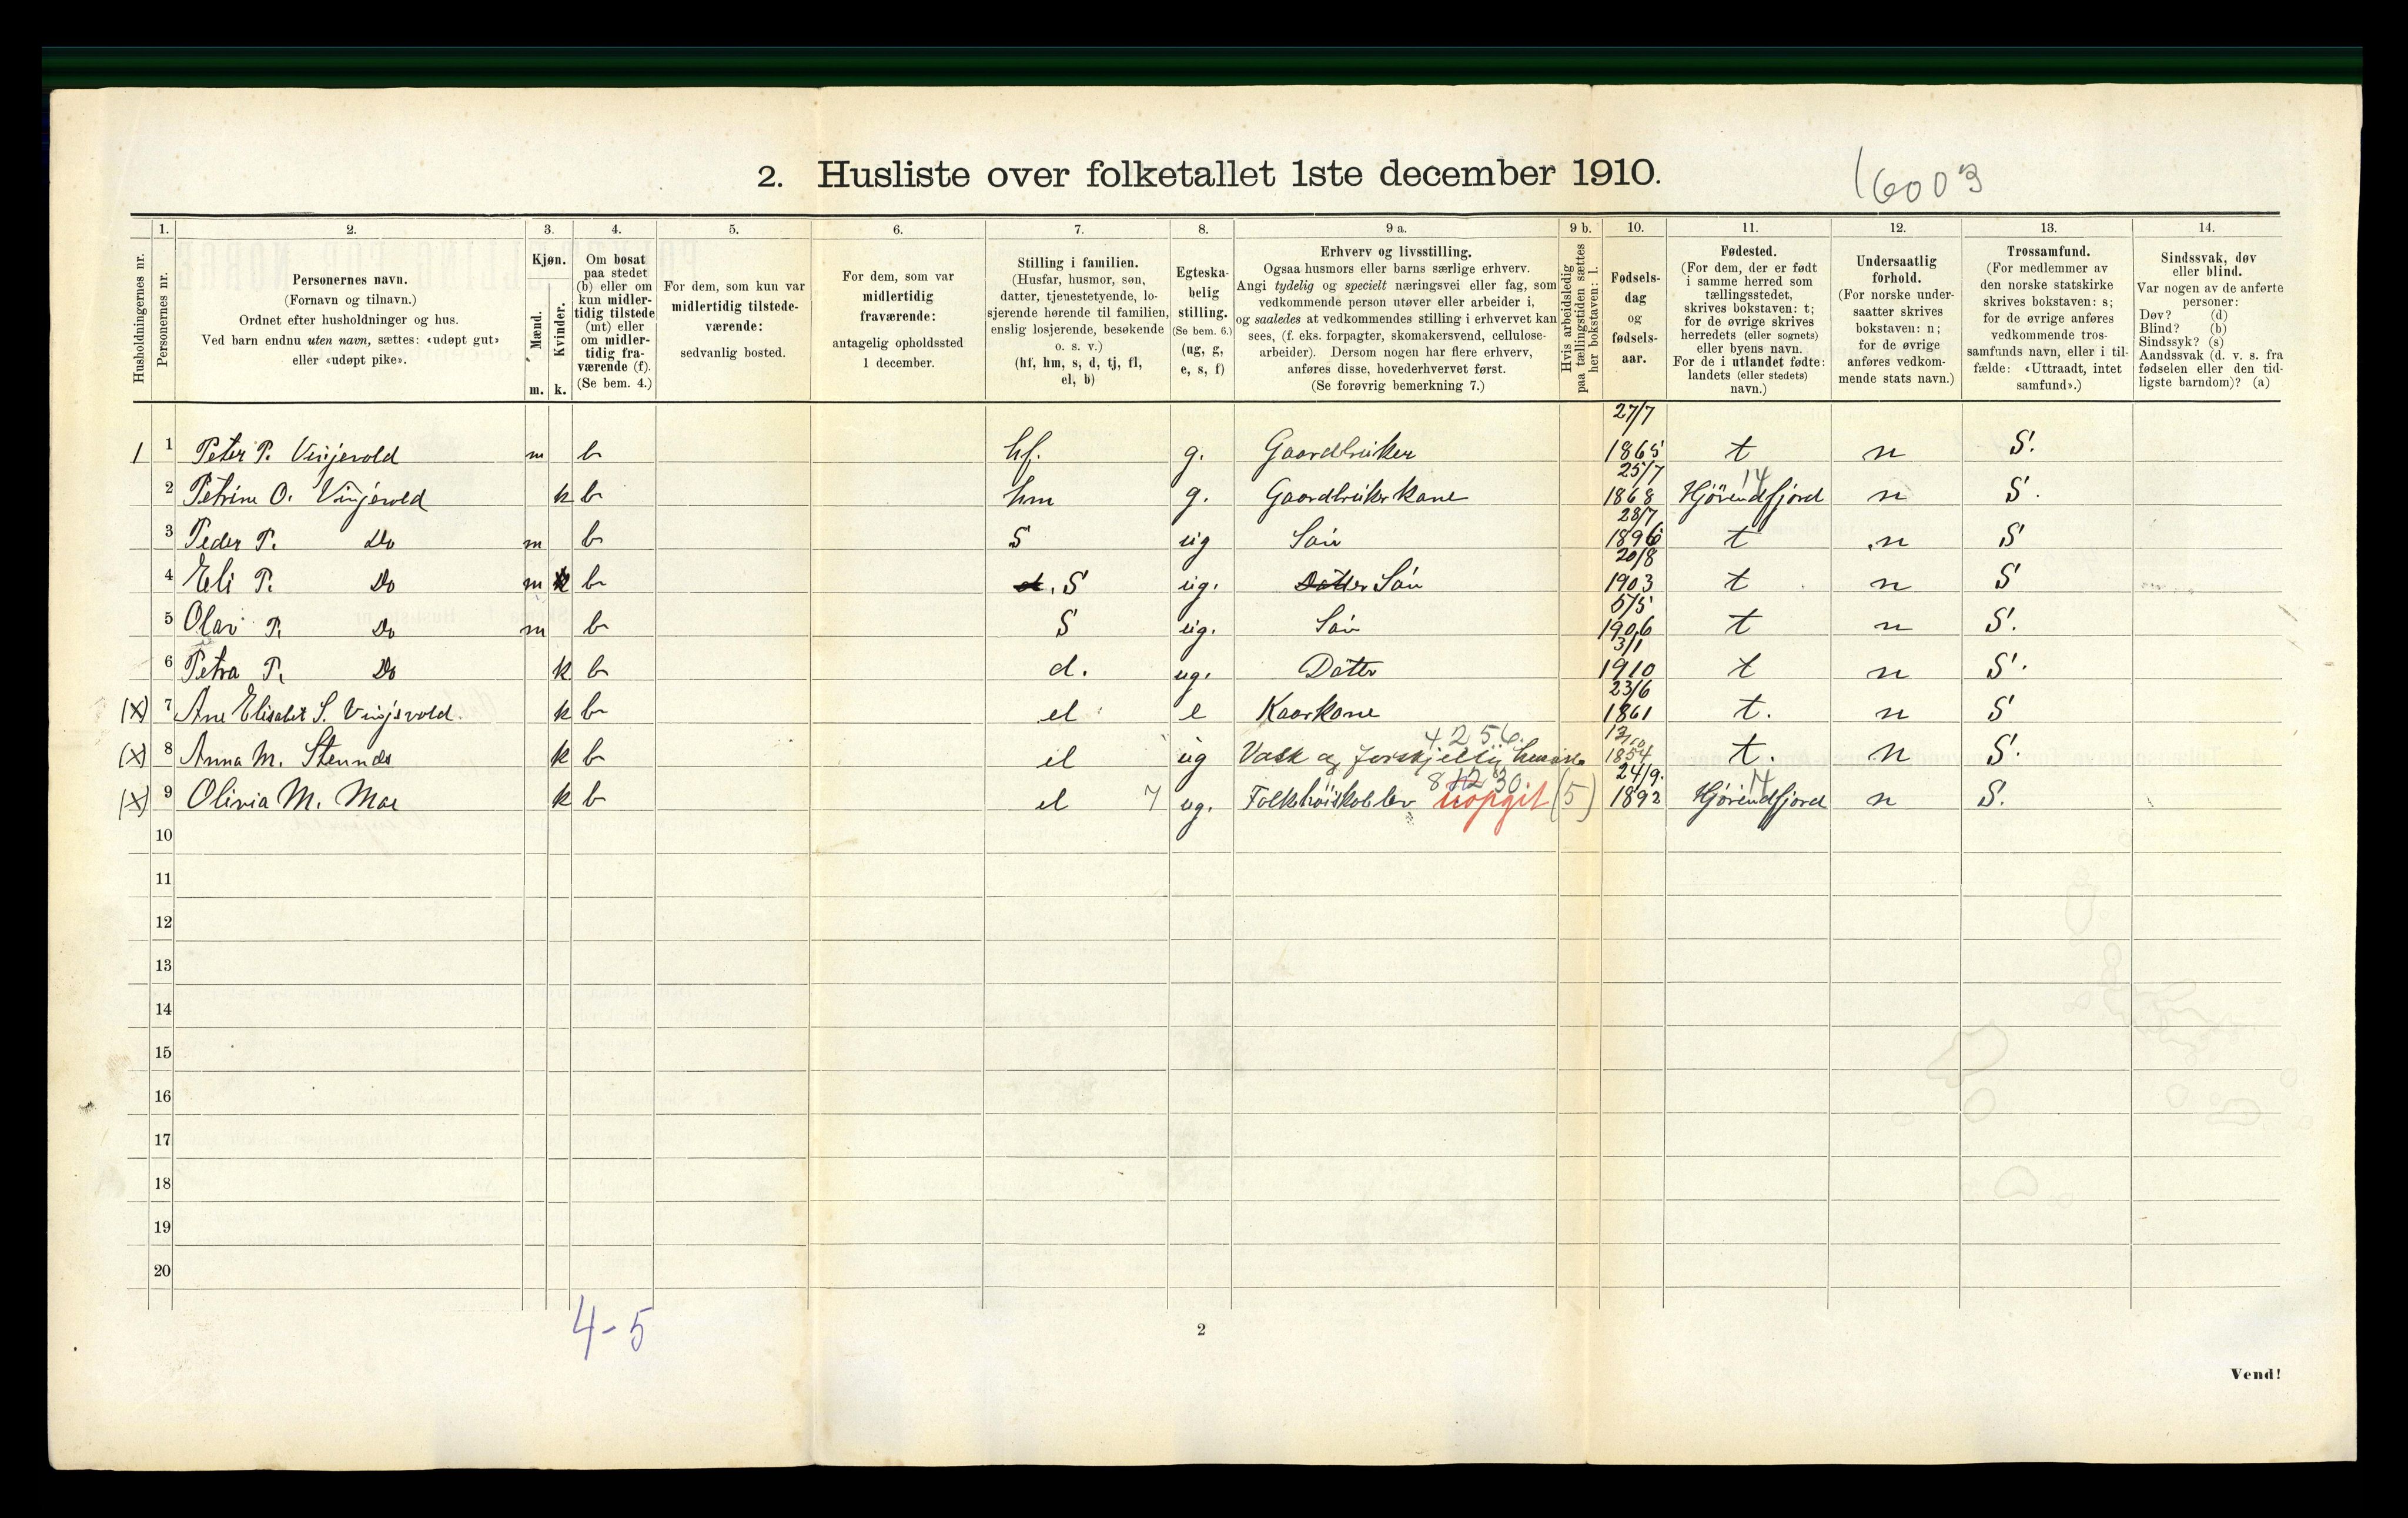 2. Husliste over folketallet 1ste december 1910.
16003
Husholdningernes nr.
1.
Personernes nr.
2.
Personernes navn.
(Fornavn og tilnavn.)
Ordnet efter husholdninger og hus.
Ved barn endnu uten navn, sættes: «udøpt gut»
eller «udøpt pike».
3.
Kjøn.
Mænd.
Kvinder.
m. k.
4.
Om bosat
paa stedet
(b) eller om
kun midler-
tidig tilstede
(mt) eller
om midler-
tidig fra-
værende (f).
(Se bem. 4.)
5.
For dem, som kun var
midlertidig tilstede-
værende:
sedvanlig bosted.
6.
For dem, som var
midlertidig
fraværende:
antagelig opholdssted
1 december.
7.
Stilling i familien.
(Husfar, husmor, søn,
datter, tjenestetyende, lo-
sjerende hørende til familien,
enslig losjerende, besøkende
o. s. v.)
(hf, hm, s, d, tj, fl,
el, b)
8.
Egteska-
belig
stilling.
(Se bem. 6.)
(ug, g,
e, s, f)
9 a.
Erhverv og livsstilling.
Ogsaa husmors eller barns særlige erhverv.
Angi tydelig og specielt næringsvei eller fag, som
vedkommende person utøver eller arbeider i,
og saaledes at vedkommendes stilling i erhvervet kan
sees, (f. eks. forpagter, skomakersvend, cellulose-
arbeider). Dersom nogen har flere erhverv,
anføres disse, hovederhvervet først.
(Se forøvrig bemerkning 7.)
9 b.
Hvis arbeidsledig
paa tællingstiden sættes
her bokstaven: l.
10.
Fødsels-
dag
og
fødsels-
aar.
11.
Fødested.
(For dem, der er født
i samme herred som
tællingsstedet,
skrives bokstaven: t;
for de øvrige skrives
herredets (eller sognets)
eller byens navn.
For de i utlandet fødte:
landets (eller stedets)
navn.)
12.
Undersaatlig
forhold.
(For norske under-
saatter skrives
bokstaven: n;
for de øvrige
anføres vedkom-
mende stats navn.)
13.
Trossamfund.
(For medlemmer av
den norske statskirke
skrives bokstaven: s;
for de øvrige anføres
vedkommende tros-
samfunds navn, eller i til-
fælde: «Uttraadt, intet
samfund».)
14.
Sindssvak, døv
eller blind.
Var nogen av de anførte
personer:
Døv? (d)
Blind? (b)
Sindssyk? (s)
Aandssvak (d. v. s. fra
fødselen eller den tid-
ligste barndom)? (a)
1 1 Peter P. Vinjevold m b hf. g. Gaardbruker 27/7 1865 t n S.
2 Petrine O. Vinjevold k b hm g. Gaardbruker kone 25/7 1868 Hjörendfjord 14 n S.
3 Peder P. Do m b S ug Sön 28/7 1896 t n S
4 Eli P. Do m k b d. S ug. Datter Sön 20/8 1903 t n S
5 Olav P. Do m b S ug. Sön 5/5 1906 t n S.
6 Petra P. Do k b d. ug. Datter 3/1 1910 t n S.
(X) 7 Ane Elisabet S. Vinjevold. k b el e Kaarkone 23/6 1861 t. n S
(X) 8 Anna M. Stennes k b el ug Vask og forskjellig 4256. 1854 t. n S.
(X) 9 Olivia M. Moe k b el 7 ug. Folkehöiskolelev 8 12 30 uopgit (5) 24/9. 1892 Hjörendfjord 14 n S.
10
11
12
13
14
15
16
17
18
19
20
4-5
2
Vend!